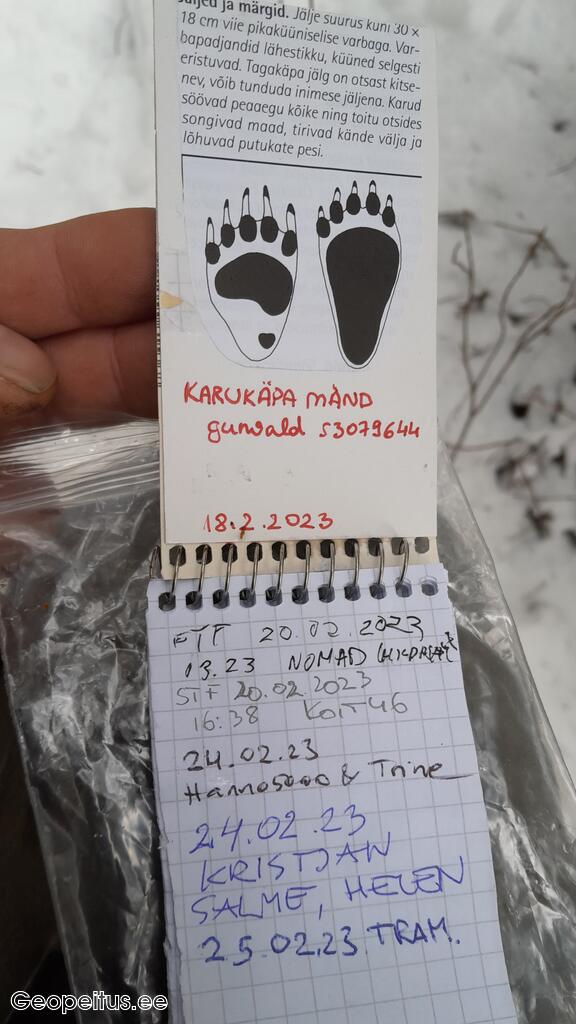 Jäljed ja märgid. Jälje suurus kuni 30 ×
18 cm viie pikaküüniselise varbaga. Var-
bapadjandid lähestikku, küüned selgesti
eristuvad. Tagakäpa jälg on otsast kitse-
nev, võib tunduda inimese jäljena. Karud
söövad peaaegu kõike ning toitu otsides
songivad maad, tirivad kände välja ja
lõhuvad putukate pesi.
KARUKÄPA MÄND
gunvald 53079644
18.2.2023
FTF 20.02.2023
13.23 NOMAD
STF 20.02.2023
16:38 KOIT46
24.02.23
Hanno5000 & Triine
24.02.23
KRISTJAN
SALME, HELEN
25.02.23 TRAM.
Geopeitus.ee